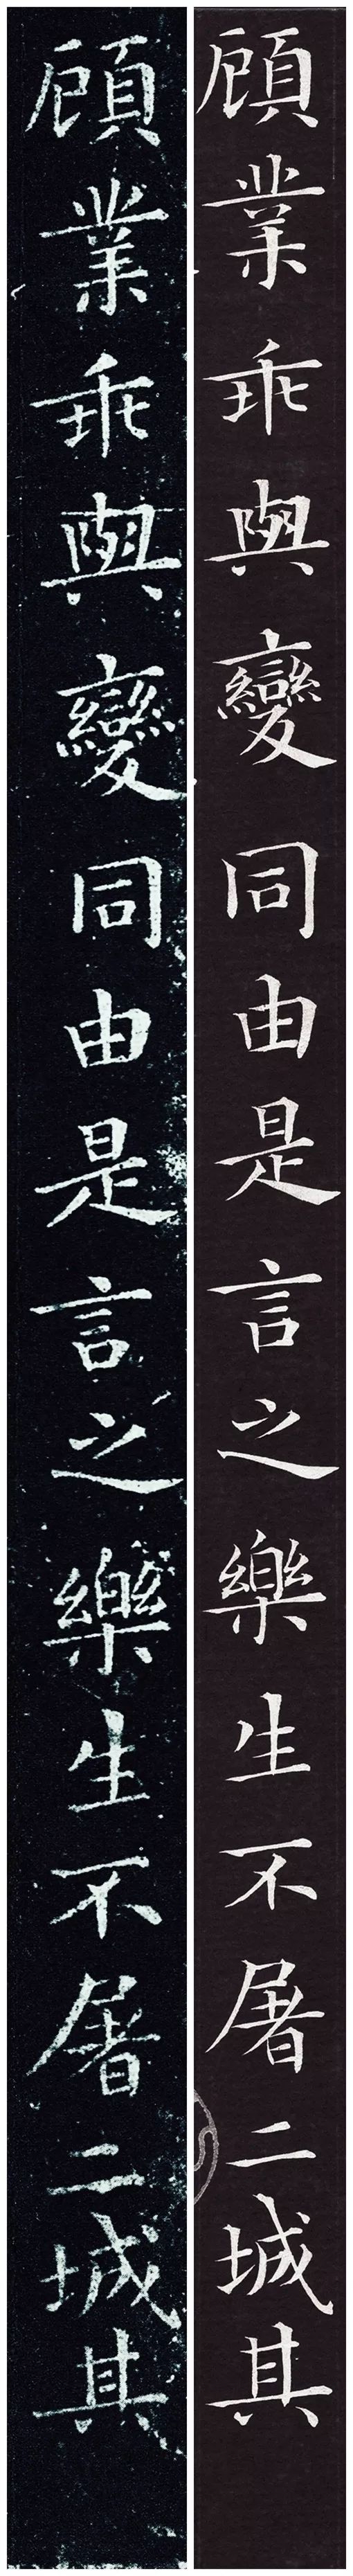 顧業乖與變同由是言之樂生不屠二城其
顧業乖與變同由是言之樂生不屠二城其